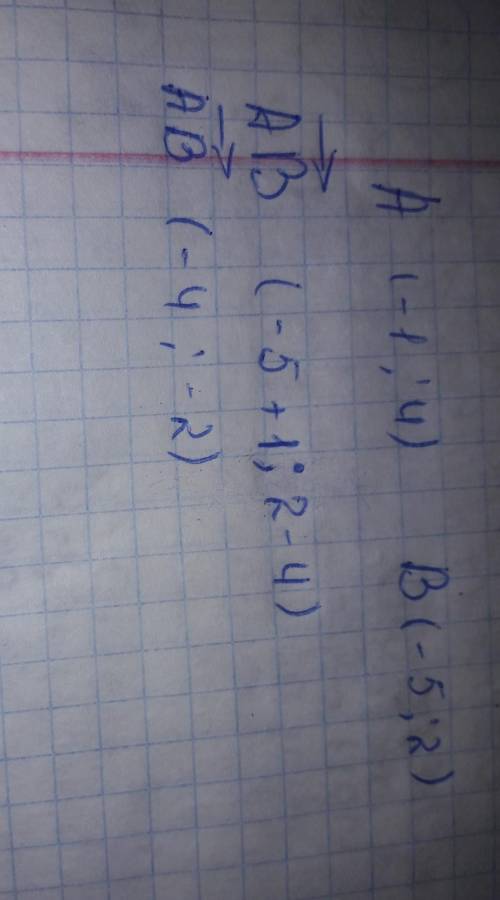 A (-1; 4) B (-5; 2)
AB→ (-5+1; 2-4)
AB→ (-4; -2)